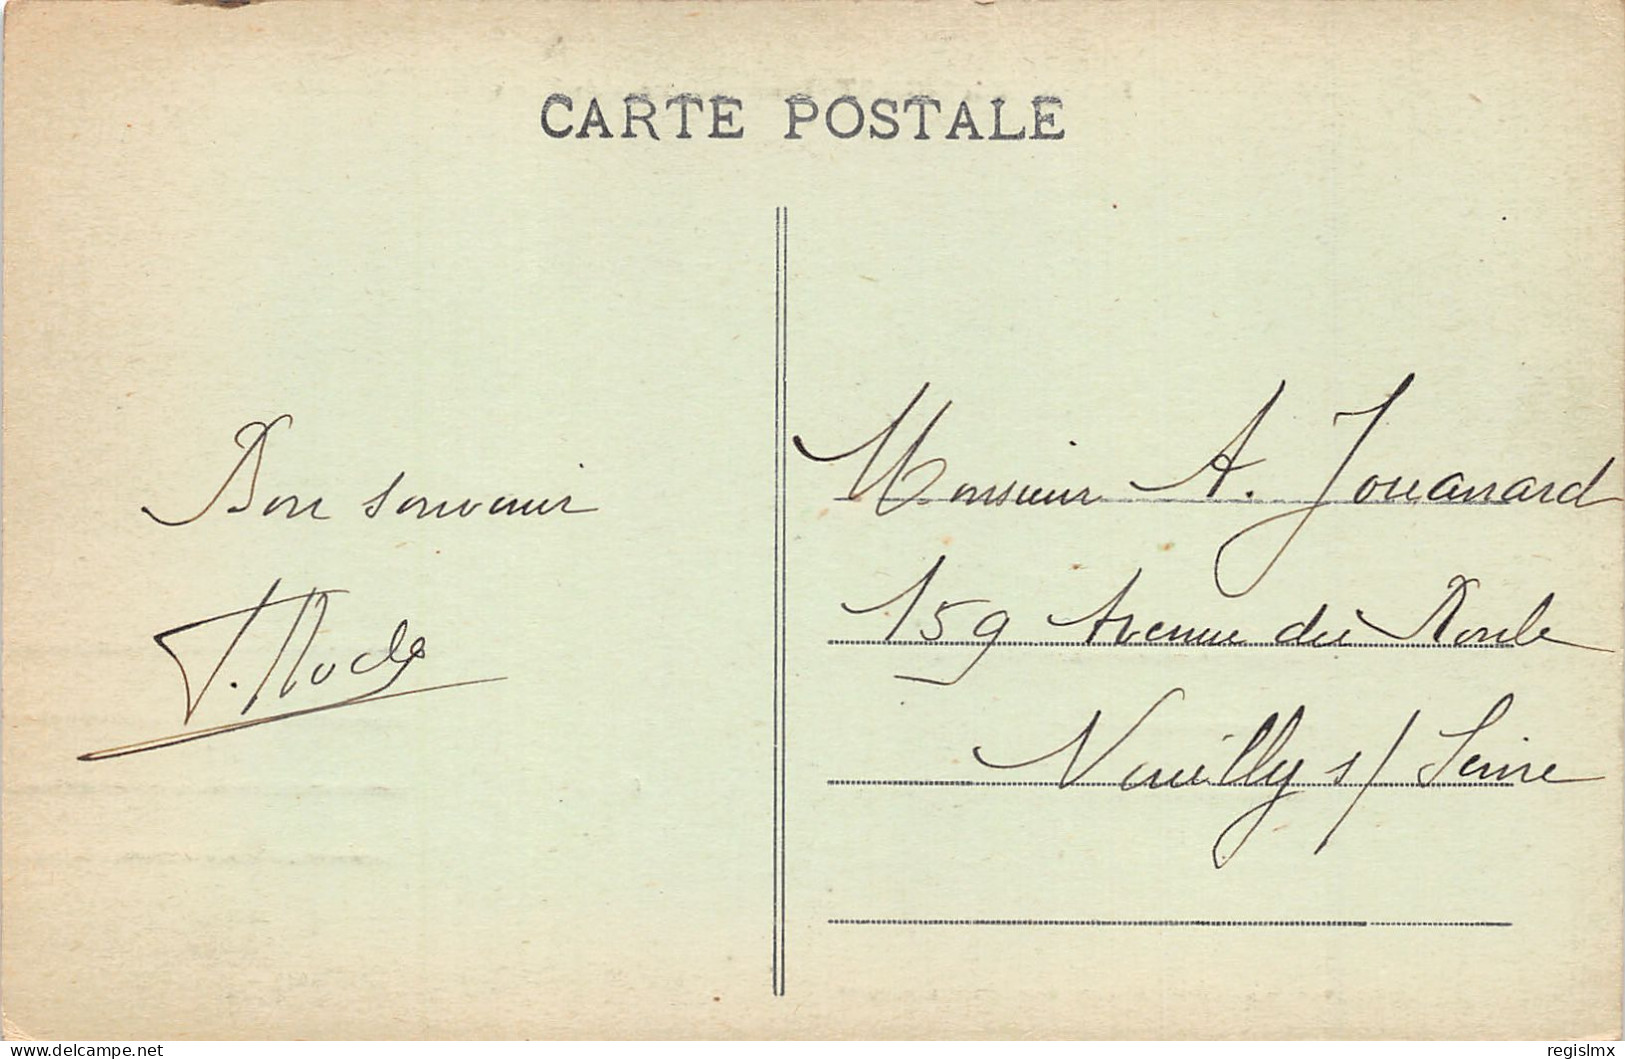 CARTE POSTALE
Bon souvenir
Monsieur A. Jouanard
159 Avenue du Roule
Neuilly s/ Seine
www.delcampe.net
regislmx